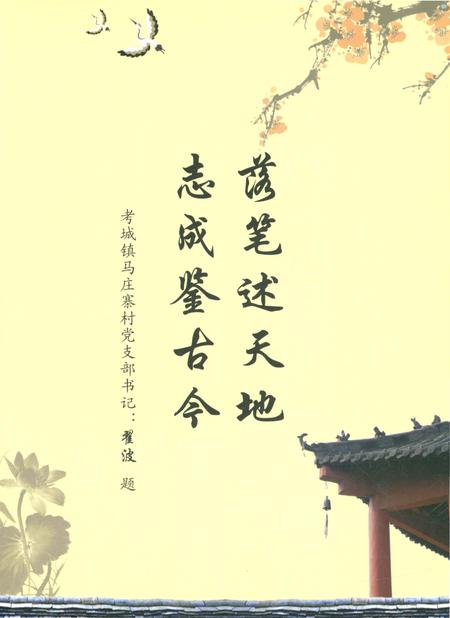 落笔述天地
志成鉴古今
考城镇马庄寨村党支部书记：翟波 题